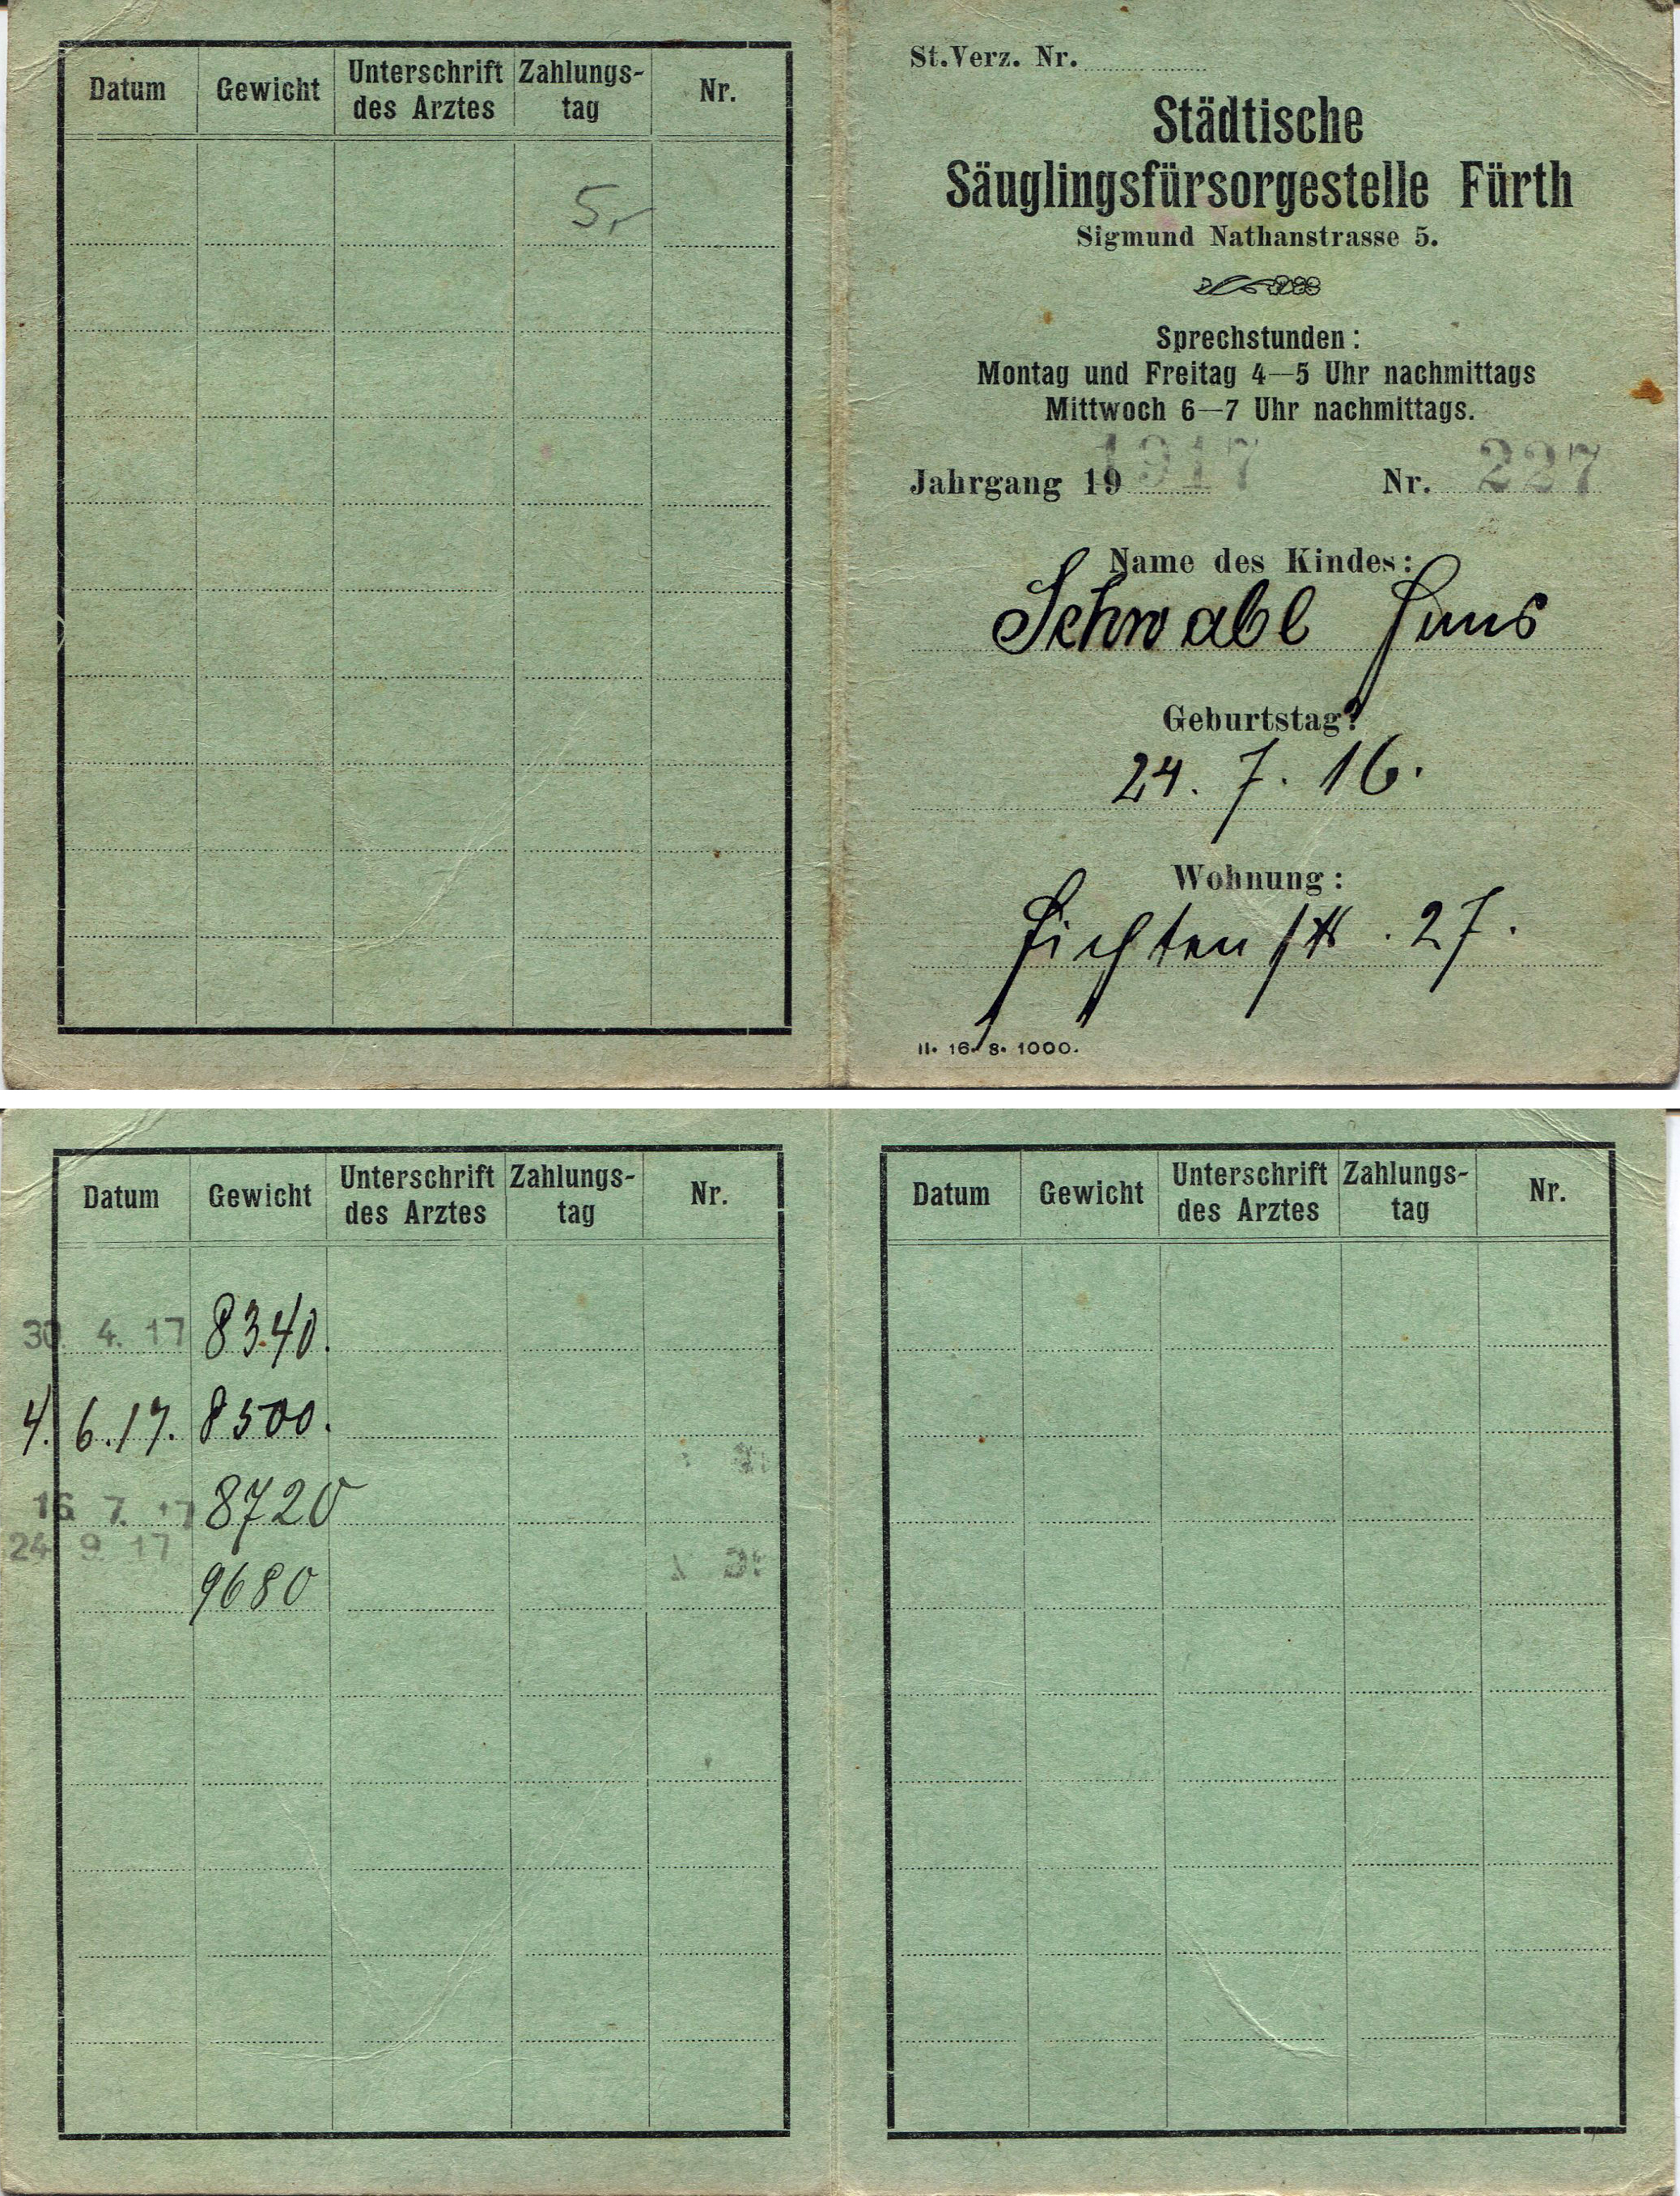 Datum Gewicht Unterschrift des Arztes Zahlungs-tag Nr.
5,-
St.Verz. Nr.
Städtische
Säuglingsfürsorgestelle Fürth
Sigmund Nathanstrasse 5.
Sprechstunden:
Montag und Freitag 4—5 Uhr nachmittags
Mittwoch 6—7 Uhr nachmittags.
Jahrgang 19 1917 Nr. 227
Name des Kindes:
Schwabl Hans
Geburtstag:
24. 7. 16.
Wohnung:
Fichtenstr. 27.
II. 16. 8. 1000.
Datum Gewicht Unterschrift des Arztes Zahlungs-tag Nr.
30. 4. 17 8340.
4. 6. 17. 8500.
16. 7. 17 8720
24. 9. 17
9680
Datum Gewicht Unterschrift des Arztes Zahlungs-tag Nr.